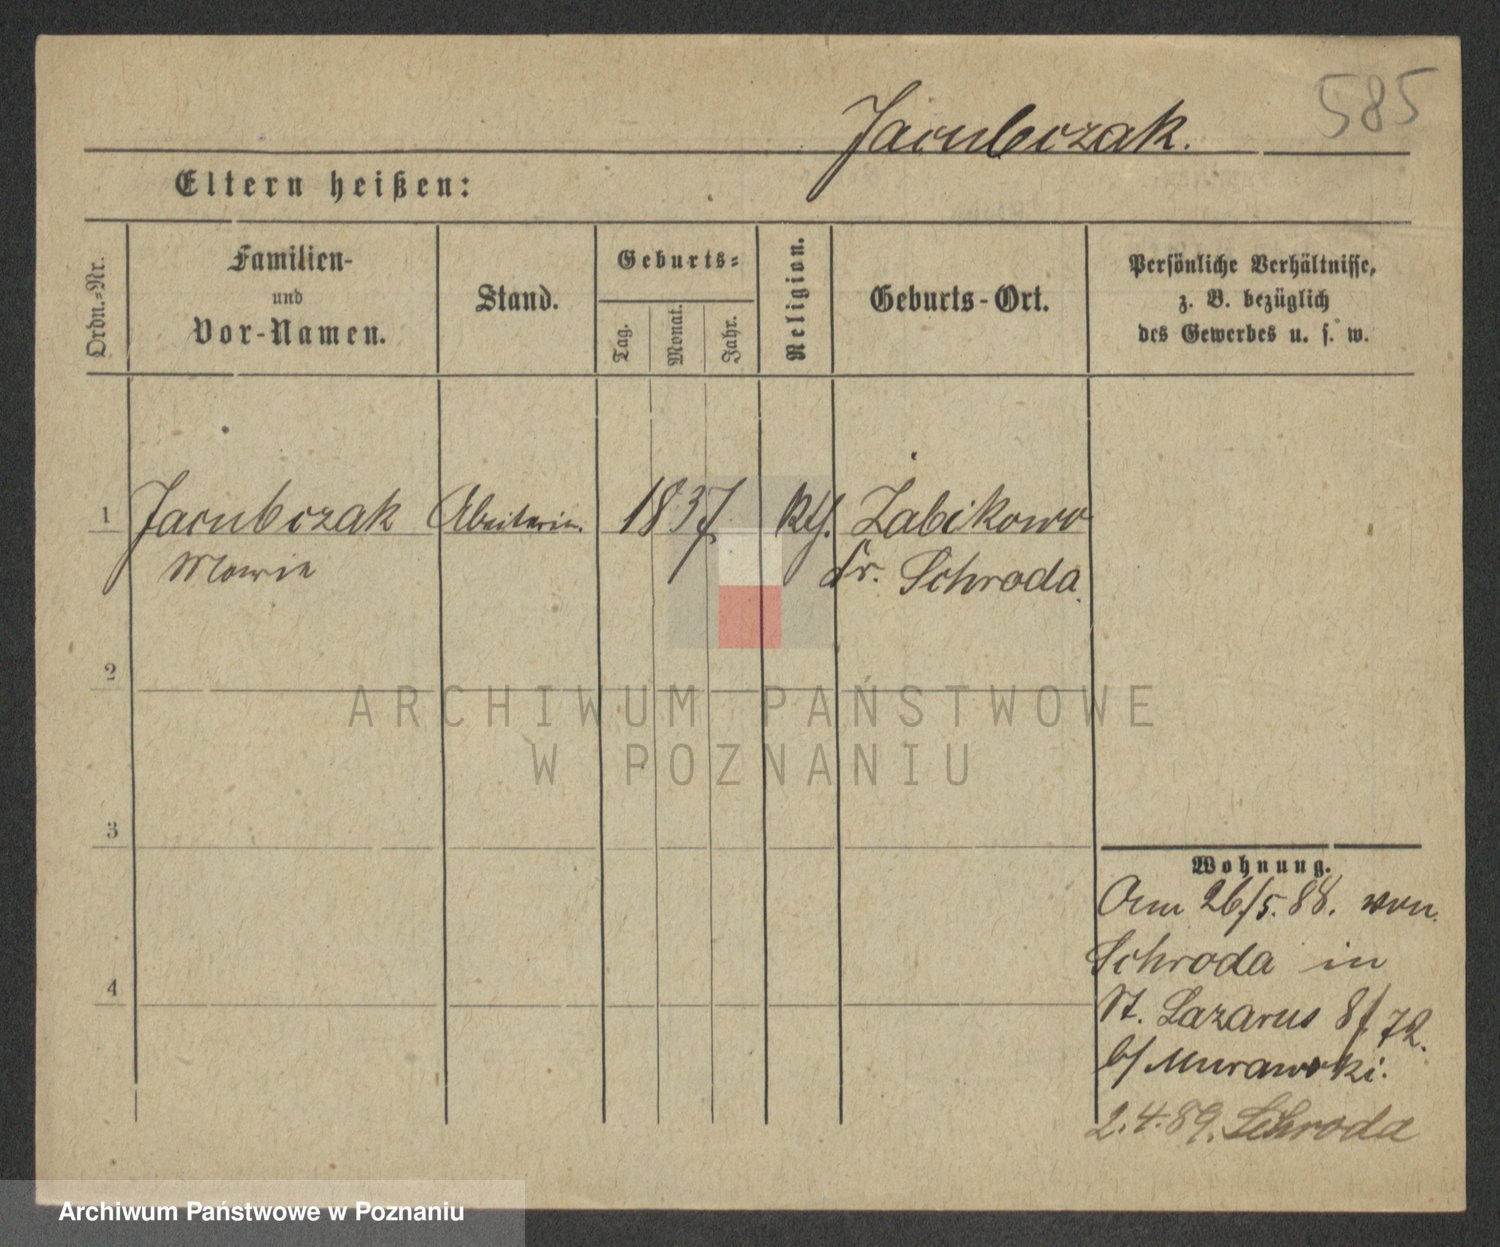 585
Jacubczak.
Eltern heißen:
Ordn.-Nr.
Familien-
und
Vor-Namen.
Stand.
Geburts-
Tag.
Monat.
Jahr.
Religion.
Geburts-Ort.
Persönliche Verhältnisse,
z. B. bezüglich
des Gewerbes u. s. w.
1 Jacubczak Arbeiterin. 1837 kth. Zabikowo
Marie Kr. Schroda.
2
3
4
Wohnung.
Am 26/5. 88. von
Schroda in
St. Lazarus 8f 72.
b/ Murawski.
2.4.89. Schroda
ARCHIWUM PAŃSTWOWE
W POZNANIU
Archiwum Państwowe w Poznaniu